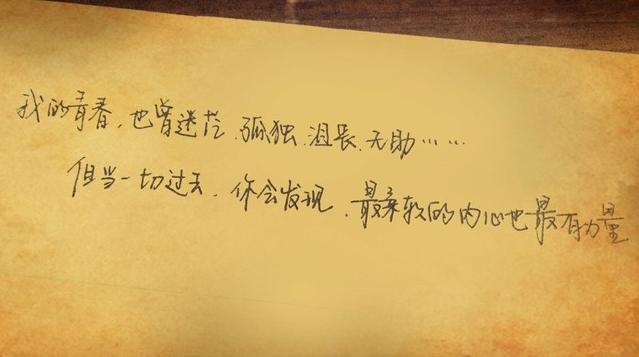 我的青春,也曾迷茫、孤独、沮丧、无助……
但当一切过去,你会发现、最柔软的内心也最有力量